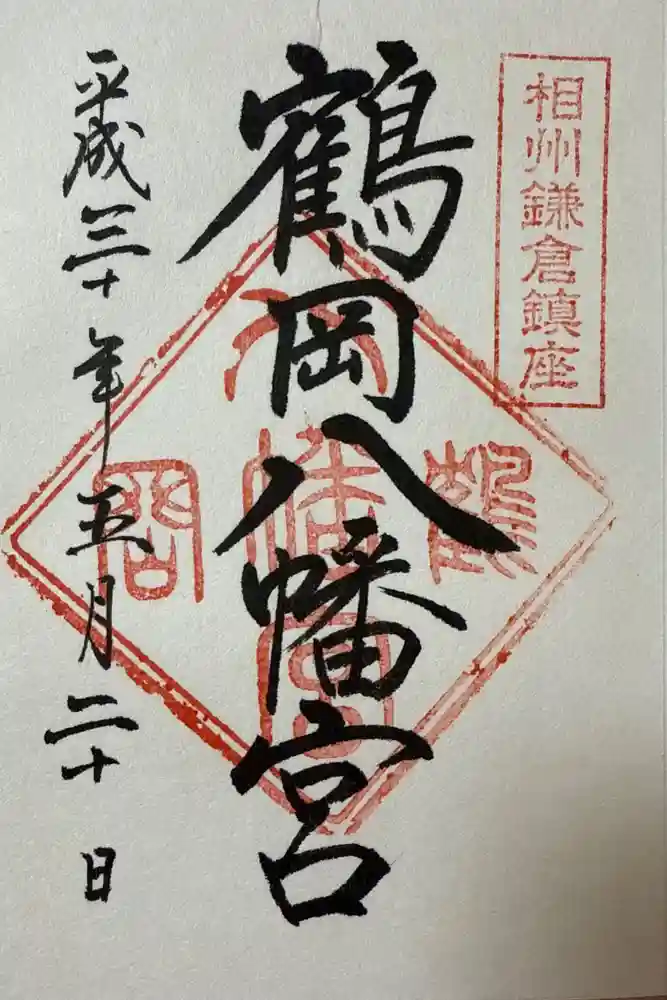 相州鎌倉鎮座
鶴岡八幡宮
平成三十年五月二十日
鶴岡八幡宮